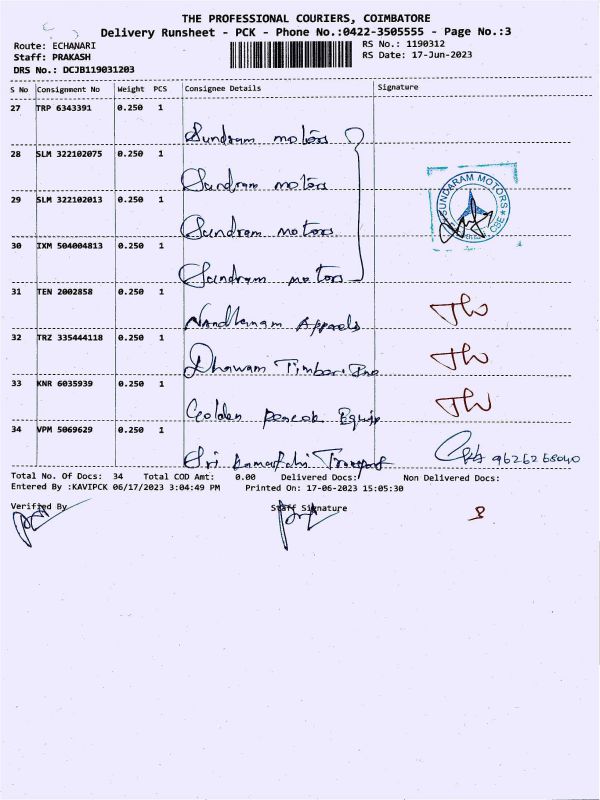 THE PROFESSIONAL COURIERS, COIMBATORE
Delivery Runsheet - PCK - Phone No.:0422-3505555 - Page No.:3
Route: ECHANARI RS No.: 1190312
Staff: PRAKASH RS Date: 17-Jun-2023
DRS No.: DCJB119031203
S No Consignment No Weight PCS Consignee Details Signature
27 TRP 6343391 0.250 1
Sundram motors
28 SLM 322102075 0.250 1
Sundram motors
SUNDARAM MOTORS
CBE
29 SLM 322102013 0.250 1
Sundram motors
30 IXM 504004813 0.250 1
Sundram motors
31 TEN 2002858 0.250 1
Nandhanam Apparels
32 TRZ 335444118 0.250 1
33 KNR 6035939 0.250 1
Golden Equip
34 VPM 5069629 0.250 1
Sri 9626268040
Total No. Of Docs: 34 Total COD Amt: 0.00 Delivered Docs: Non Delivered Docs:
Entered By :KAVIPCK 06/17/2023 3:04:49 PM Printed On: 17-06-2023 15:05:30
Verified By Staff Signature
8